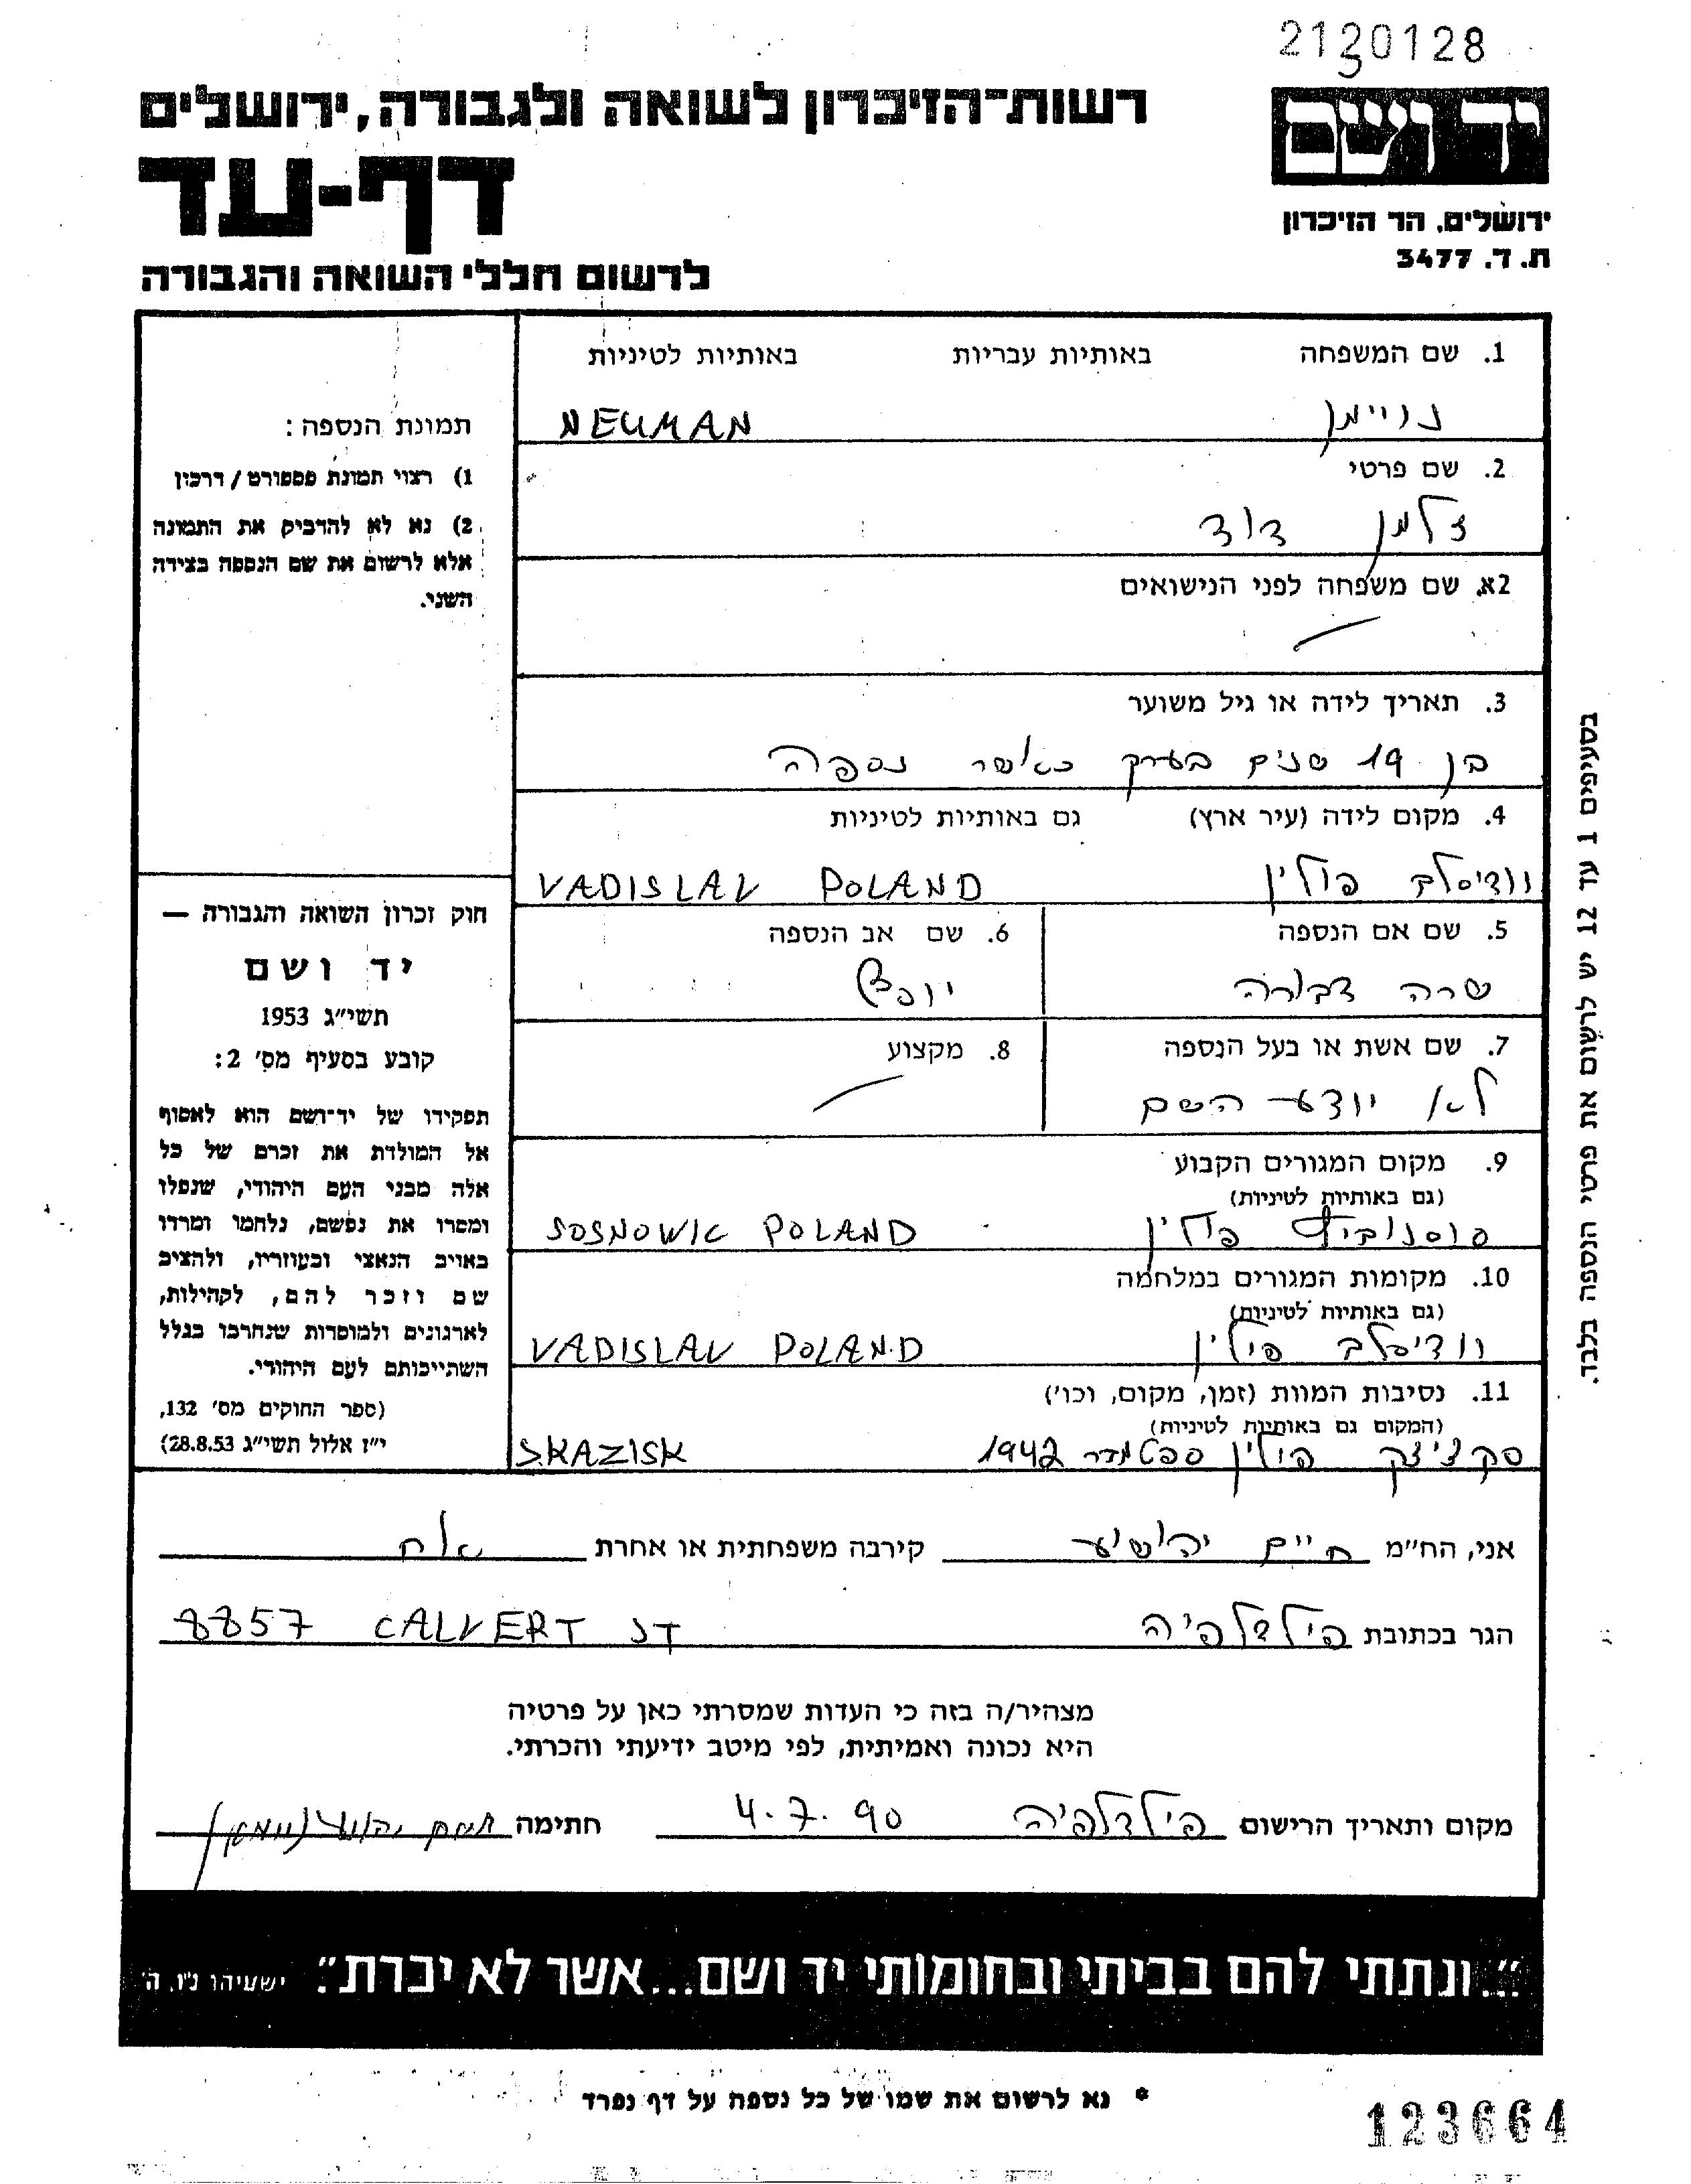 2130128
רשות־הזיכרון לשואה ולגבורה, ירושלים
יד ושם
דף-עד
ירושלים, הר הזיכרון
ת. ד. 3477
לרשום חללי השואה והגבורה
1. שם המשפחה באותיות עבריות באותיות לטיניות
נויימן NEUMAN
2. שם פרטי
זלמן דוד
2א. שם משפחה לפני הנישואים
3. תאריך לידה או גיל משוער
בן 19 שנים בערך כאשר נספה
4. מקום לידה (עיר ארץ) גם באותיות לטיניות
וודיסלב פולין VADISLAV POLAND
5. שם אם הנספה 6. שם אב הנספה
שרה דבורה יוסף
7. שם אשת או בעל הנספה 8. מקצוע
לא יודע השם
9. מקום המגורים הקבוע
(גם באותיות לטיניות)
סוסנוביץ פולין SOSNOWIC POLAND
10. מקומות המגורים במלחמה
(גם באותיות לטיניות)
וודיסלב פולין VADISLAV POLAND
11. נסיבות המוות (זמן, מקום, וכו')
(המקום גם באותיות לטיניות)
סקציצק פולין ספטמבר 1942 SKAZISK
תמונת הנספה:
1) רצוי תמונת פספורט / דרכון
2) נא לא להדביק את התמונה
אלא לרשום את שם הנספה בצידה
השני.
חוק זכרון השואה והגבורה —
יד ושם
תשי"ג 1953
קובע בסעיף מס' 2:
תפקידו של יד־ושם הוא לאסוף
אל המולדת את זכרם של כל
אלה מבני העם היהודי, שנפלו
ומסרו את נפשם, נלחמו ומרדו
באויב הנאצי ובעוזריו, ולהציב
שם וזכר להם, לקהילות,
לארגונים ולמוסדות שנחרבו בגלל
השתייכותם לעם היהודי.
(ספר החוקים מס' 132,
י"ז אלול תשי"ג 28.8.53)
בסעיפים 1 עד 12 יש לרשום את פרטי הנספה בלבד.
אני, הח"מ חיים יהושע קירבה משפחתית או אחרת אח
הגר בכתובת פילדלפיה 8857 CALVERT ST
מצהיר/ה בזה כי העדות שמסרתי כאן על פרטיה
היא נכונה ואמיתית, לפי מיטב ידיעתי והכרתי.
מקום ותאריך הרישום פילדלפיה 4.7.90 חתימה חיים יהושע נויימאן
"...ונתתי להם בביתי ובחומותי יד ושם...אשר לא יכרת". ישעיהו נ"ו, ה'
* נא לרשום את שמו של כל נספה על דף נפרד
123664